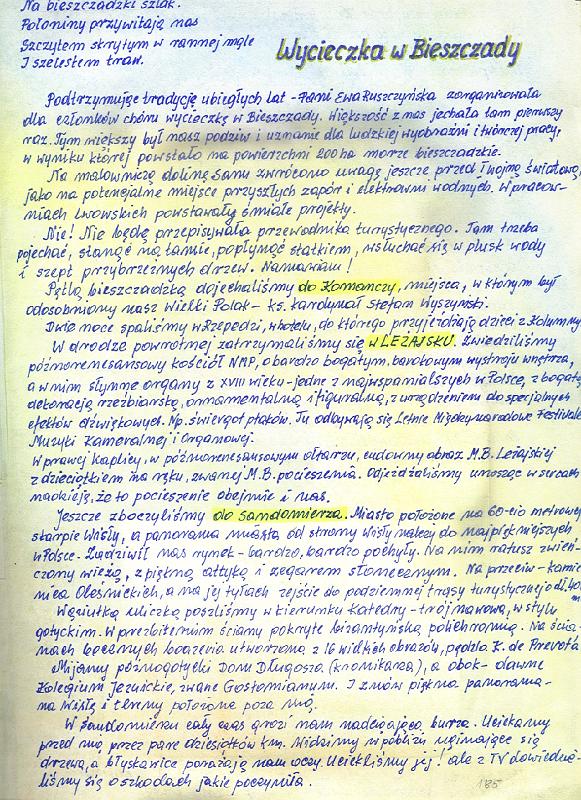 Na bieszczadzki szlak.
Połoniny przywitają nas
Szczytem skrytym w rannej mgle
I szelestem traw.
Wycieczka w Bieszczady
Podtrzymując tradycję ubiegłych lat - Pani Ewa Ruszczyńska zorganizowała
dla członków chóru wycieczkę w Bieszczady. Większość z nas jechała tam pierwszy
raz. Tym większy był nasz podziw i uznanie dla ludzkiej wyobraźni i twórczej pracy,
w wyniku której powstało na powierzchni 200 ha morze bieszczadzkie.
Na malowniczą dolinę Sanu zwrócono uwagę jeszcze przed II wojną światową,
jako na potencjalne miejsce przyszłych zapór i elektrowni wodnych. W pracow-
niach lwowskich powstawały śmiałe projekty.
Nie! Nie będę przepisywała przewodnika turystycznego. Tam trzeba
pojechać, stanąć na tamie, popłynąć statkiem, wsłuchać się w plusk wody
i szept przybrzeżnych drzew. Namawiam!
Pętlą bieszczadzką dojechaliśmy do Komańczy, miejsca, w którym był
odosobniony nasz Wielki Polak - ks. kardynał Stefan Wyszyński.
Dwie noce spaliśmy w Rzepedzi, w hotelu, do którego przyjeżdżają dzieci z Kolumny
W drodze powrotnej zatrzymaliśmy się w LEŻAJSKU. Zwiedziliśmy
późnorenesansowy kościół NMP, o bardzo bogatym, barokowym wystroju wnętrza,
a w nim słynne organy z XVIII wieku - jedne z najwspanialszych w Polsce, z bogatą
dekoracją rzeźbiarską, ornamentalną i figuralną, z urządzeniem do specjalnych
efektów dźwiękowych. Np. świergot ptaków. Tu odbywają się Letnie Międzynarodowe Festiwale
Muzyki Kameralnej i Organowej.
W prawej kaplicy, w późnorenesansowym ołtarzu, cudowny obraz M.B. Leżajskiej
z dzieciątkiem na ręku, zwanej M.B. pocieszenia. Odjeżdżaliśmy unosząc w sercach
nadzieję, że to pocieszenie obejmie i nas.
Jeszcze zboczyliśmy do Sandomierza. Miasto położone na 60-cio metrowej
skarpie Wisły, a panorama miasta od strony Wisły należy do najpiękniejszych
w Polsce. Zadziwił nas rynek - bardzo, bardzo pochyły. Na nim ratusz zwień-
czony wieżą, z piękną attyką i zegarem słonecznym. Na przeciw - kamie-
nica Oleśnickich, a na jej tyłach zejście do podziemnej trasy turystycznej o dł. 40
m
Wąziutką uliczką poszliśmy w kierunku Katedry - trójnawowa, w stylu
gotyckim. W prezbiterium ściany pokryte bizantyńską polichromią. Na ścia-
nach bocznych boazeria utworzona z 16 wielkich obrazów, pędzla K. de Prevota
Mijamy późnogotycki Dom Długosza (kronikarza), a obok - dawne
Kolegium Jezuickie, zwane Gostomianum. I znów piękna panorama -
na Wisłę i tereny położone poza nią.
W Sandomierzu cały czas grozi nam nadciągająca burza. Uciekamy
przed nią przez parę dziesiątków km. Widzimy w pobliżu uginające się
drzewa, a błyskawice porażają nam oczy. Uciekliśmy jej! ale z TV dowiedzie-
liśmy się o szkodach jakie poczyniła.
185